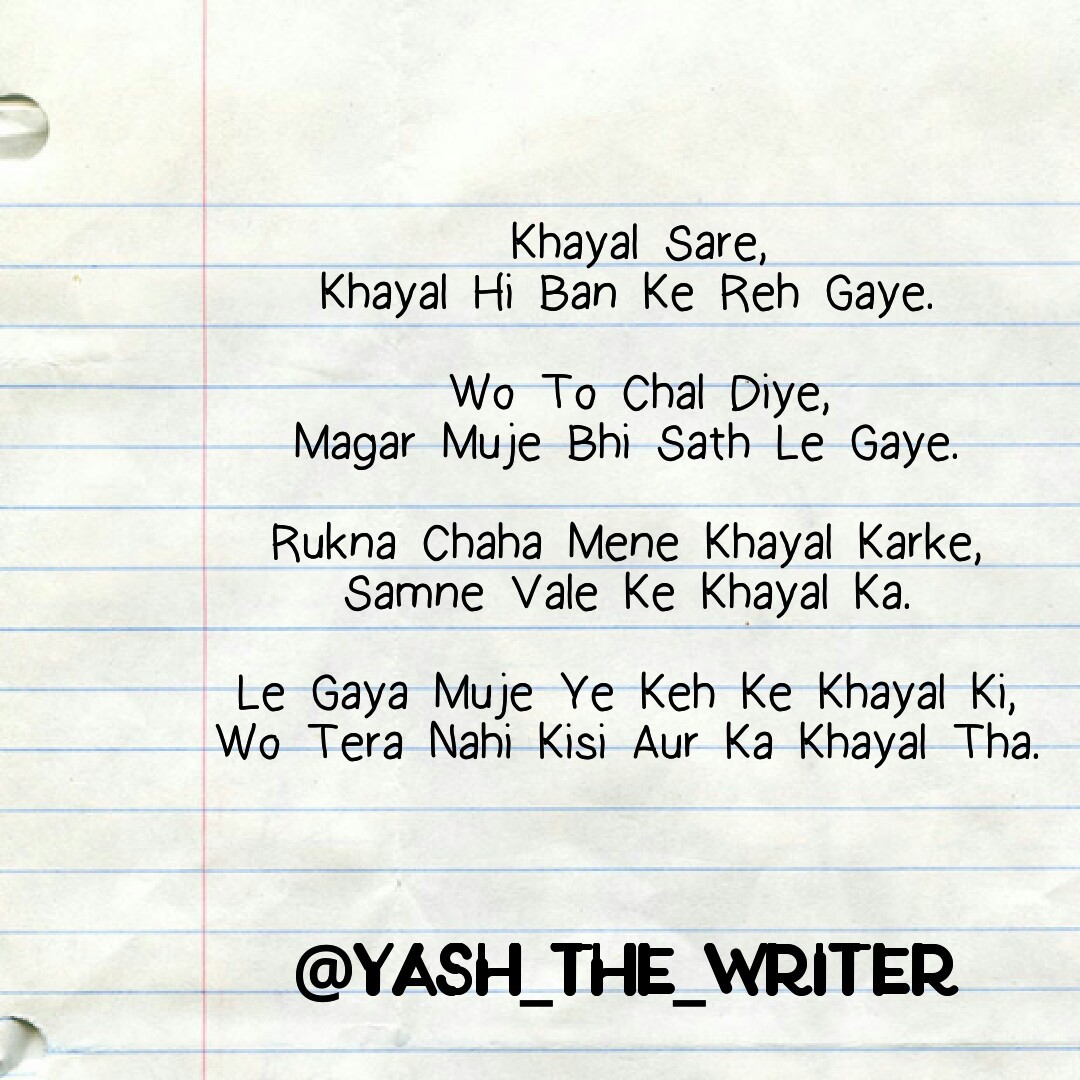 Khayal Sare,
Khayal Hi Ban Ke Reh Gaye.
Wo To Chal Diye,
Magar Muje Bhi Sath Le Gaye.
Rukna Chaha Mene Khayal Karke,
Samne Vale Ke Khayal Ka.
Le Gaya Muje Ye Keh Ke Khayal Ki,
Wo Tera Nahi Kisi Aur Ka Khayal Tha.
@YASH_THE_WRITER